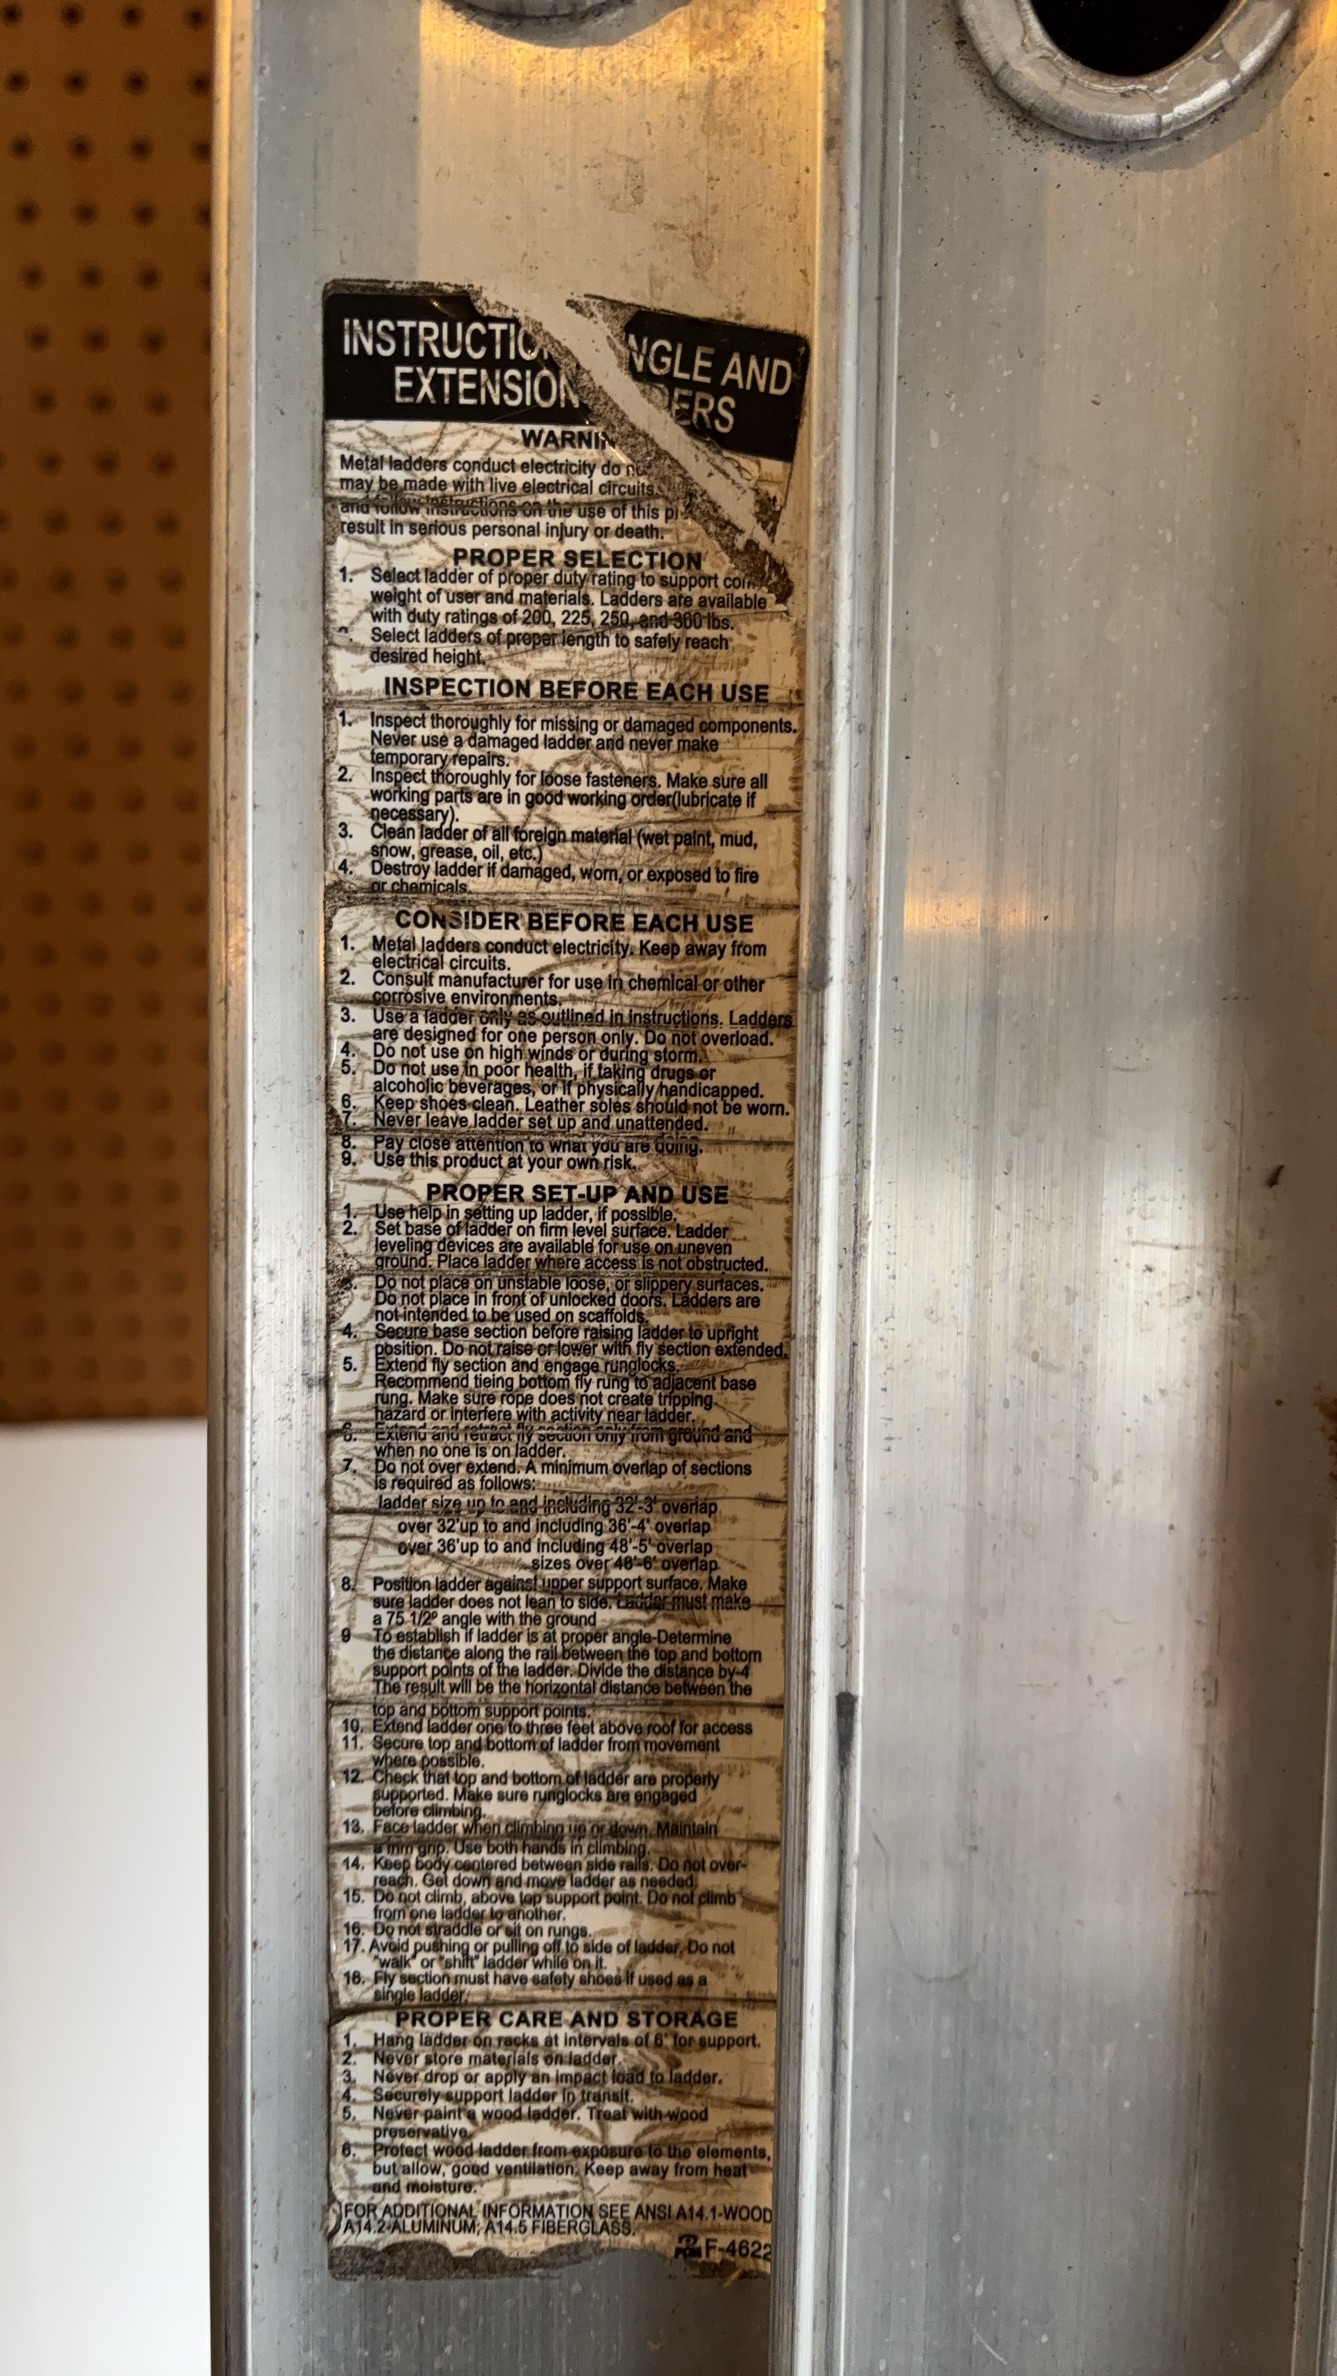 INSTRUCTIO NGLE AND
EXTENSION DERS
WARNIN
Metal ladders conduct electricity do no
may be made with live electrical circuits.
and follow instructions on the use of this p
result in serious personal injury or death.
PROPER SELECTION
1. Select ladder of proper duty rating to support com
weight of user and materials. Ladders are available
with duty ratings of 200, 225, 250, and 300 lbs.
Select ladders of proper length to safely reach
desired height.
INSPECTION BEFORE EACH USE
1. Inspect thoroughly for missing or damaged components.
Never use a damaged ladder and never make
temporary repairs.
2. Inspect thoroughly for loose fasteners. Make sure all
working parts are in good working order(lubricate if
necessary).
3. Clean ladder of all foreign material (wet paint, mud,
snow, grease, oil, etc.)
4. Destroy ladder if damaged, worn, or exposed to fire
or chemicals.
CONSIDER BEFORE EACH USE
1. Metal ladders conduct electricity. Keep away from
electrical circuits.
2. Consult manufacturer for use in chemical or other
corrosive environments.
3. Use a ladder only as outlined in instructions. Ladders
are designed for one person only. Do not overload.
4. Do not use on high winds or during storm.
5. Do not use in poor health, if taking drugs or
alcoholic beverages, or if physically handicapped.
6. Keep shoes clean. Leather soles should not be worn.
7. Never leave ladder set up and unattended.
8. Pay close attention to what you are doing.
9. Use this product at your own risk.
PROPER SET-UP AND USE
1. Use help in setting up ladder, if possible.
2. Set base of ladder on firm level surface. Ladder
leveling devices are available for use on uneven
ground. Place ladder where access is not obstructed.
3. Do not place on unstable loose, or slippery surfaces.
Do not place in front of unlocked doors. Ladders are
not intended to be used on scaffolds.
4. Secure base section before raising ladder to upright
position. Do not raise or lower with fly section extended.
5. Extend fly section and engage runglocks.
Recommend tieing bottom fly rung to adjacent base
rung. Make sure rope does not create tripping
hazard or interfere with activity near ladder.
6. Extend and retract fly section only from ground and
when no one is on ladder.
7. Do not over extend. A minimum overlap of sections
is required as follows:
ladder size up to and including 32'-3' overlap
over 32'up to and including 36'-4' overlap
over 36'up to and including 48'-5' overlap
sizes over 48'-6' overlap
8. Position ladder against upper support surface. Make
sure ladder does not lean to side. Ladder must make
a 75 1/2º angle with the ground
9 To establish if ladder is at proper angle-Determine
the distance along the rail between the top and bottom
support points of the ladder. Divide the distance by-4
The result will be the horizontal distance between the
top and bottom support points.
10. Extend ladder one to three feet above roof for access
11. Secure top and bottom of ladder from movement
where possible.
12. Check that top and bottom of ladder are properly
supported. Make sure runglocks are engaged
before climbing.
13. Face ladder when climbing up or down. Maintain
a firm grip. Use both hands in climbing.
14. Keep body centered between side rails. Do not over-
reach. Get down and move ladder as needed.
15. Do not climb, above top support point. Do not climb
from one ladder to another.
16. Do not straddle or sit on rungs.
17. Avoid pushing or pulling off to side of ladder. Do not
"walk" or "shift" ladder while on it.
18. Fly section must have safety shoes if used as a
single ladder.
PROPER CARE AND STORAGE
1. Hang ladder on racks at intervals of 6' for support.
2. Never store materials on ladder.
3. Never drop or apply an impact load to ladder.
4. Securely support ladder in transit.
5. Never paint a wood ladder. Treat with wood
preservative.
6. Protect wood ladder from exposure to the elements,
but allow, good ventilation. Keep away from heat
and moisture.
FOR ADDITIONAL INFORMATION SEE ANSI A14.1-WOOD
A14.2-ALUMINUM; A14.5 FIBERGLASS.
F-4622